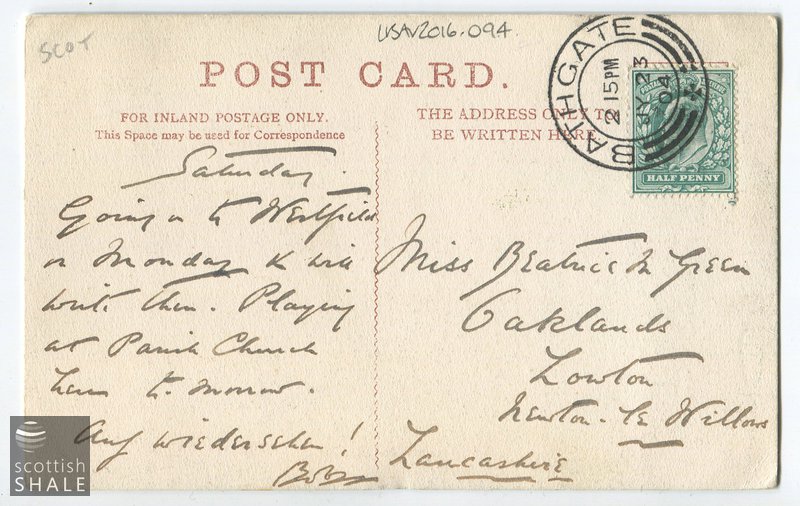 SCOT
LVSAV2016.094
POST CARD.
FOR INLAND POSTAGE ONLY.
This Space may be used for Correspondence
THE ADDRESS ONLY TO
BE WRITTEN HERE.
BATHGATE
2 15 PM
JY 23
04
HALF PENNY
Saturday.
Going on to Westfield
on Monday & will
write then. Playing
at Parish Church
here to-morrow.
Auf wiedersehen!
Bob
Miss Beatrice M Green
Oaklands
Lowton
Newton-le Willows
Lancashire
scottish
SHALE